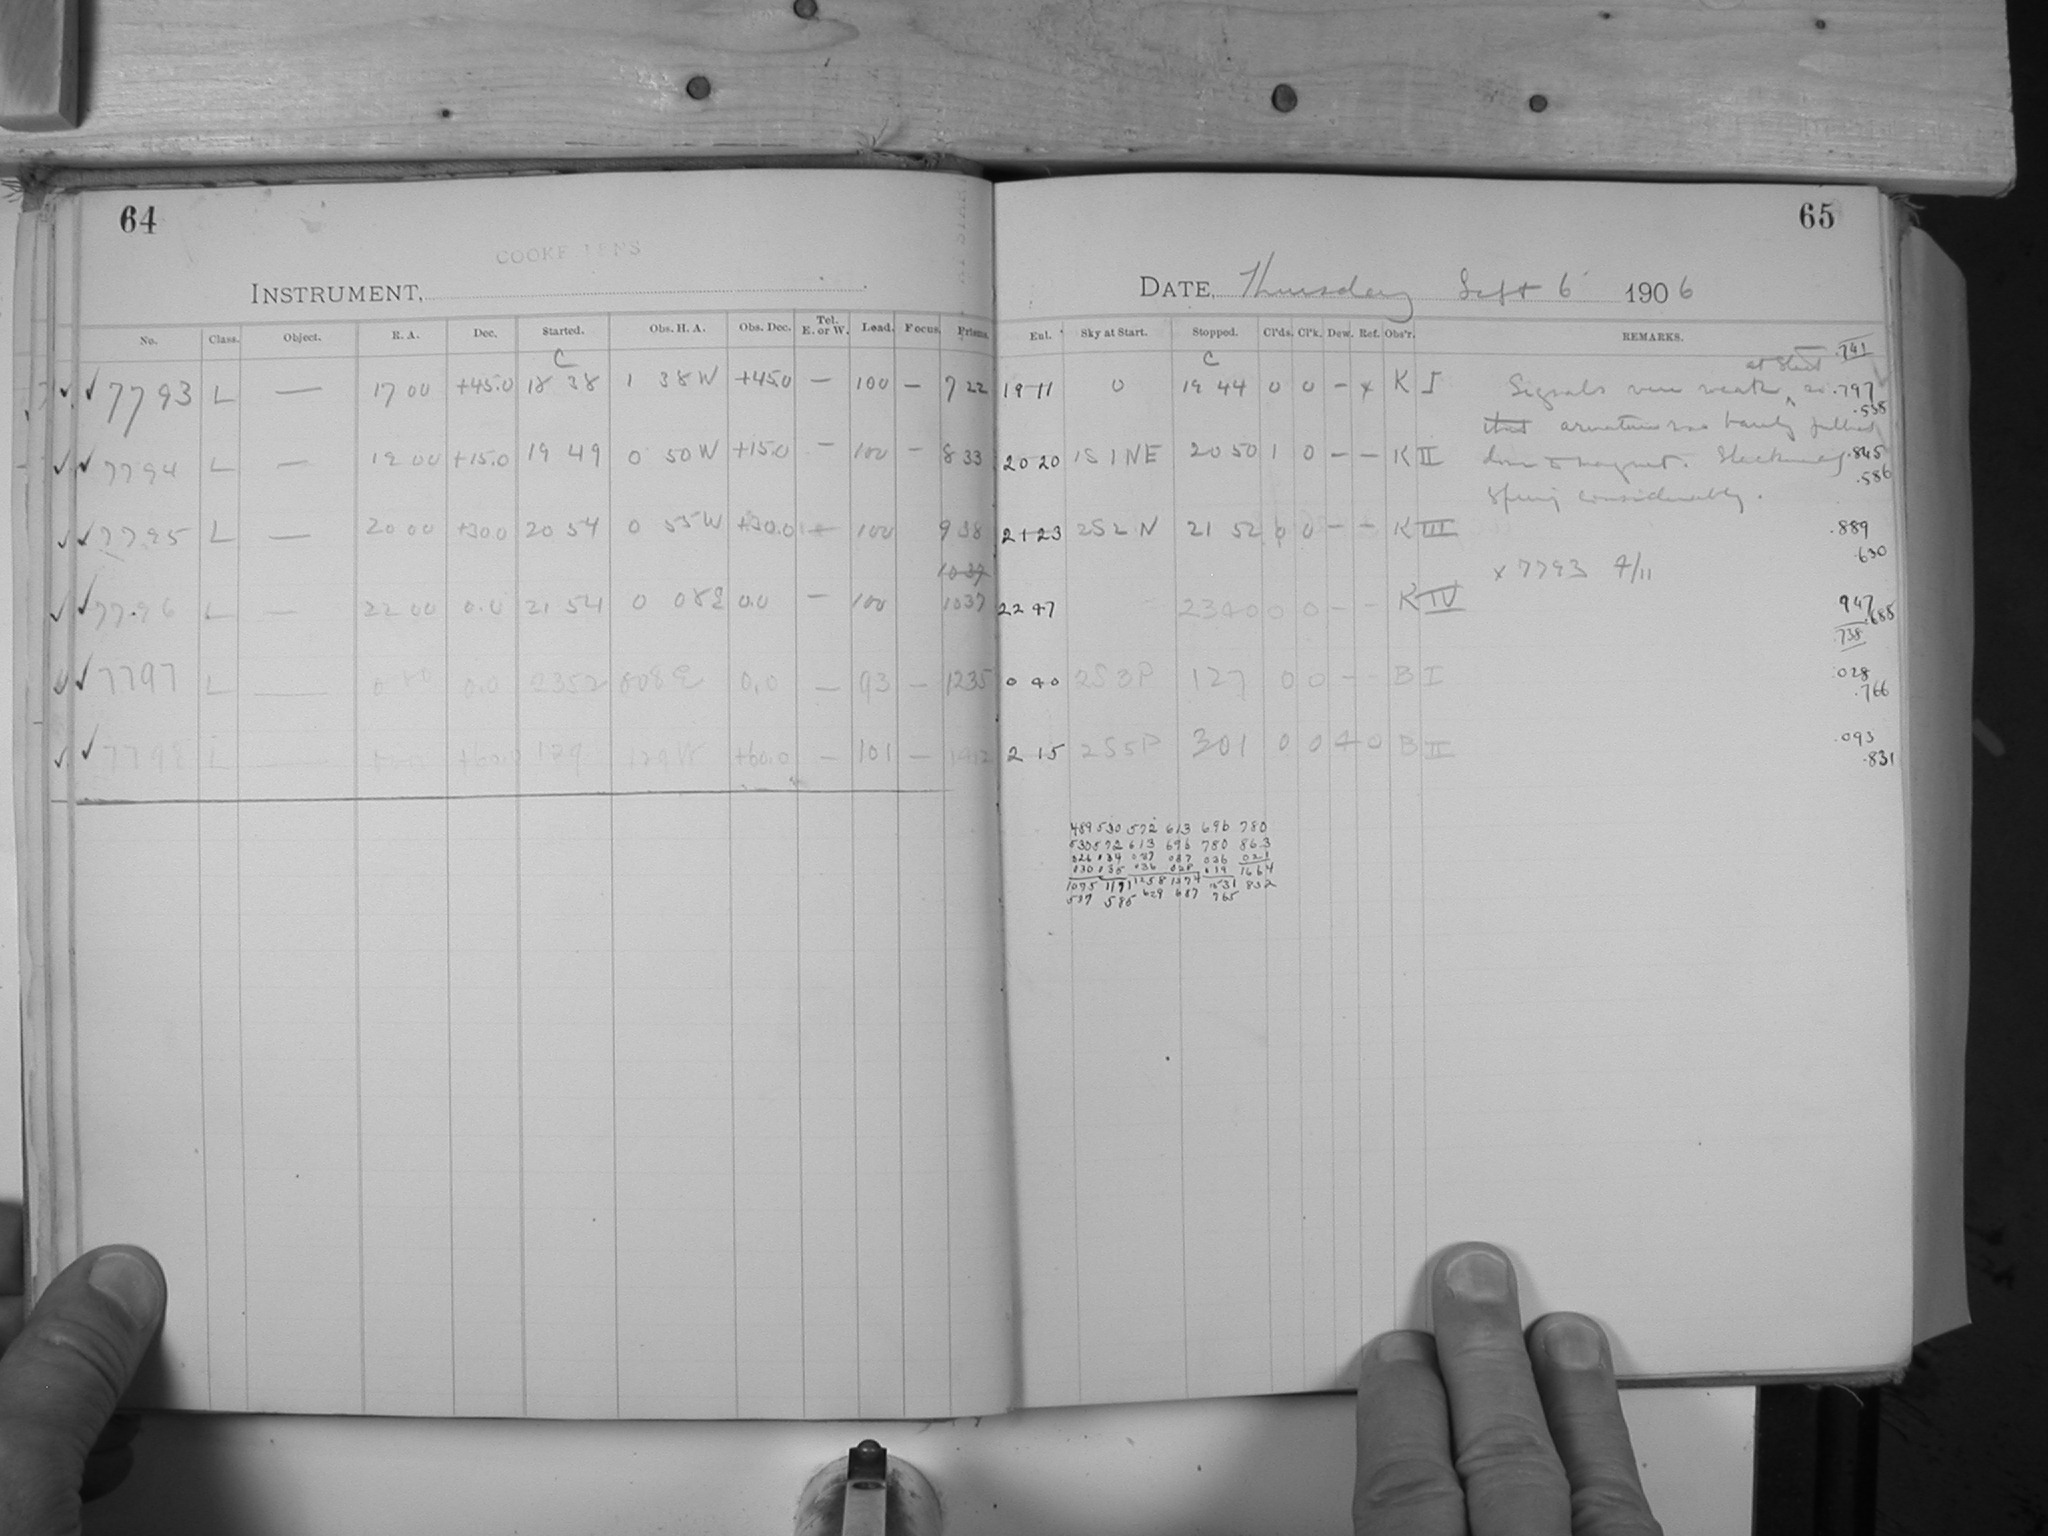 64
COOKE LENS
INSTRUMENT,
No. Class. Object. R. A. Dec. Started. Obs. H. A. Obs. Dec. Tel. E. or W. Lead. Focus. Prisms.
C
✓ ✓ 7793 L — 17 00 +45.0 18 38 1 38 W +45.0 — 100 — 7 22
✓ ✓ 7794 L — 19 00 +15.0 19 49 0 50 W +15.0 — 100 — 8 33
✓ ✓ 7795 L — 20 00 +30.0 20 54 0 55 W +30.0 — 100 9 38
1037
✓ ✓ 7796 L — 22 00 0.0 21 54 0 08 E 0.0 — 100 1037
✓ ✓ 7797 L — 0.0 2352 008 E 0.0 — 93 — 1235
✓ ✓ 7798 L — +60.0 129 129 W +60.0 — 101 — 1412
65
DATE, Thursday Sept 6 1906
Eul. Sky at Start. Stopped. Cl'ds. Cl'k. Dew. Ref. Obs'r. REMARKS.
C
19 11 0 19 44 0 0 — x K I
20 20 1S1NE 20 50 1 0 — — K II
21 23 2S2N 21 52 0 0 — — K III
22 47 2340 0 0 — — K IV
0 40 2S3P 127 0 0 — — B I
2 15 2S5P 301 0 0 4 0 B II
at start .741
Signals were weak ^ so .797
.538
that armature was barely pulled
down to magnet. Slackened .845
.586
spring considerably.
.889
.630
x 7793 4/11
947
.688
.738
.028
.766
.093
.831
489 530 572 613 696 780
530 572 613 696 780 863
026 034 037 087 036 021
030 035 036 028 019 1664
1075 1171 1258 1374 1531 832
537 585 629 687 765